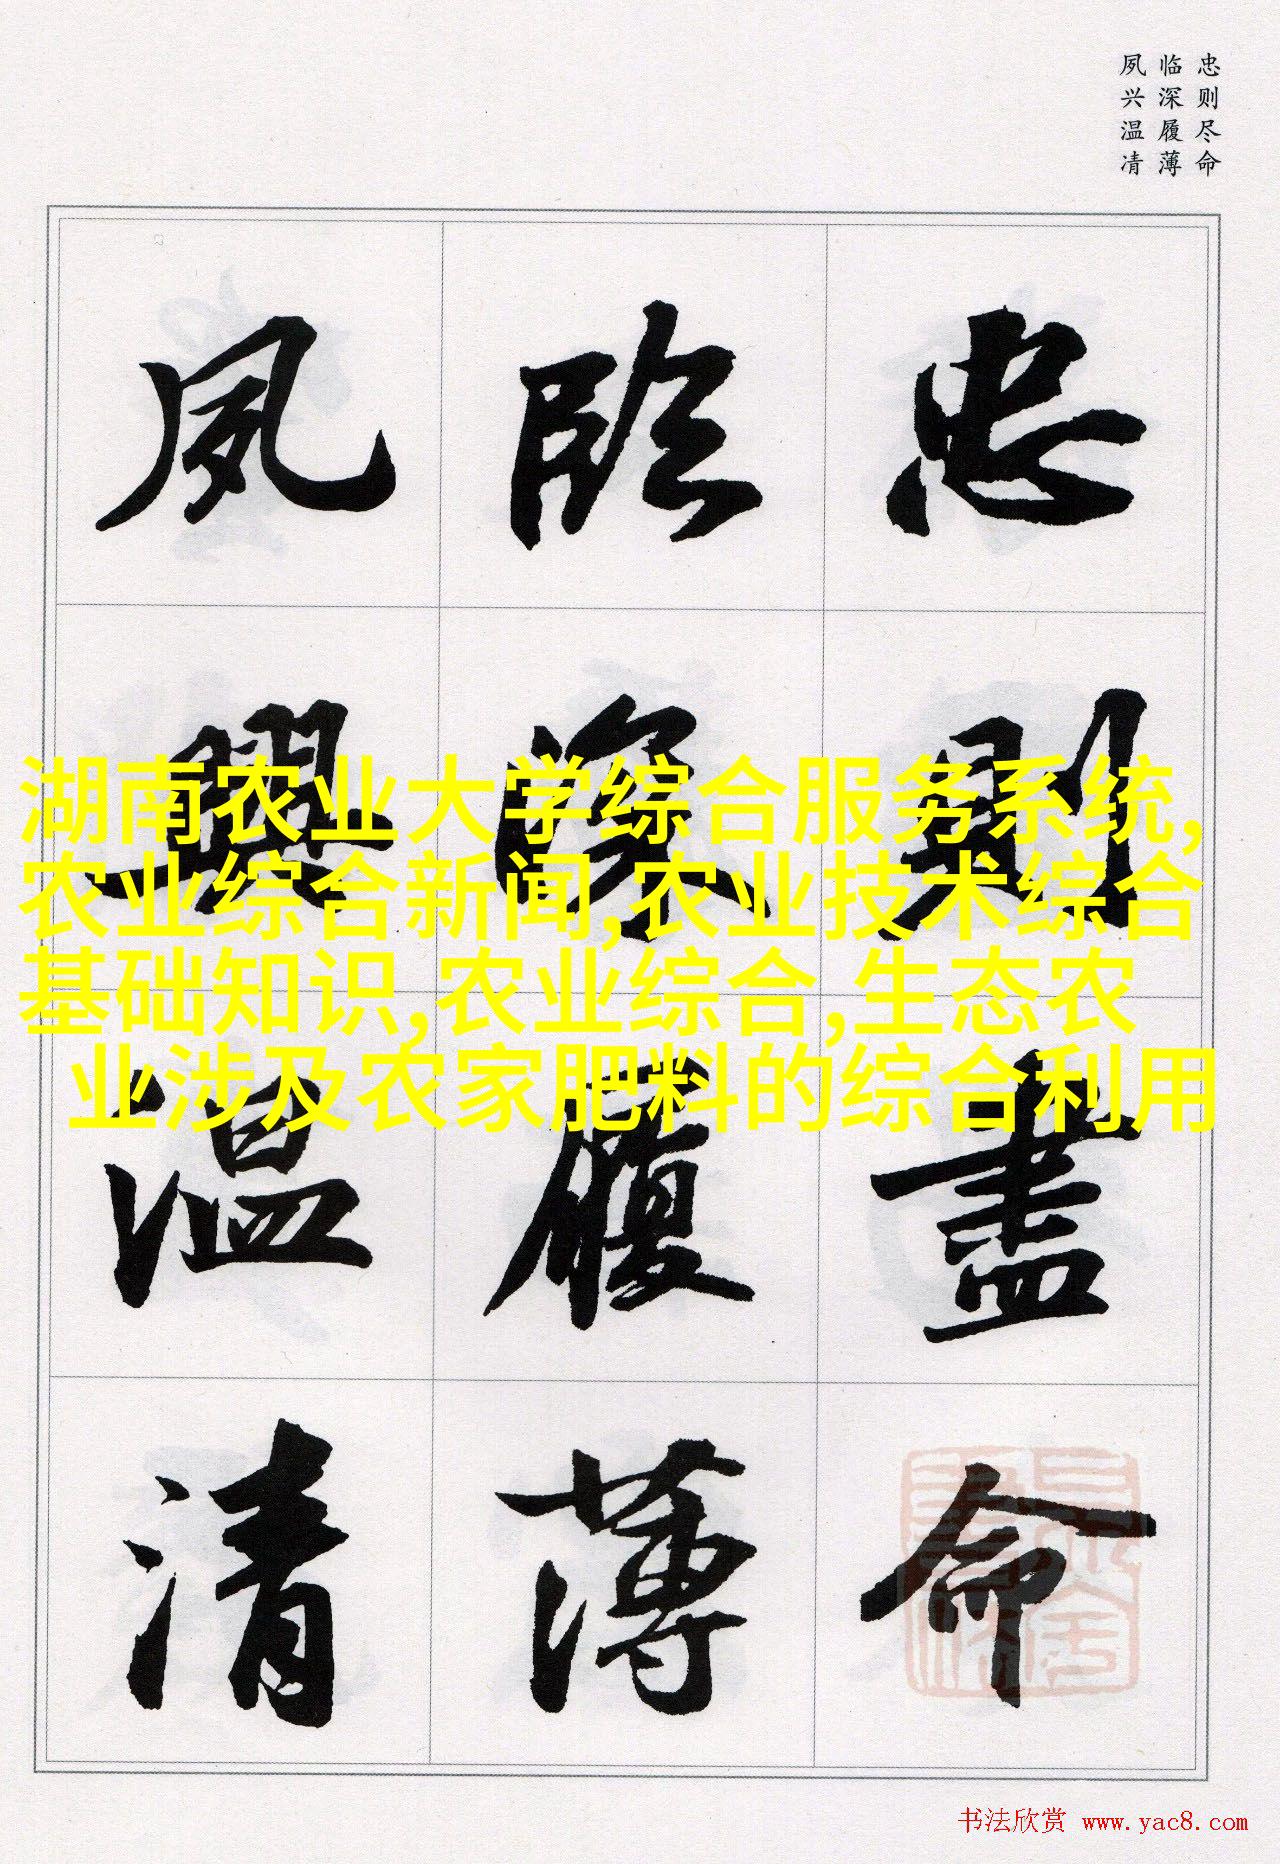 忠则尽命
临深履薄
夙兴温凊
忠則盡命
臨深履薄
夙興温清
湖南农业大学综合服务系统,
农业综合新闻,农业技术综合
基础知识,农业综合,生态农
业涉及农家肥料的综合利用
书法欣赏 www.yac8.com